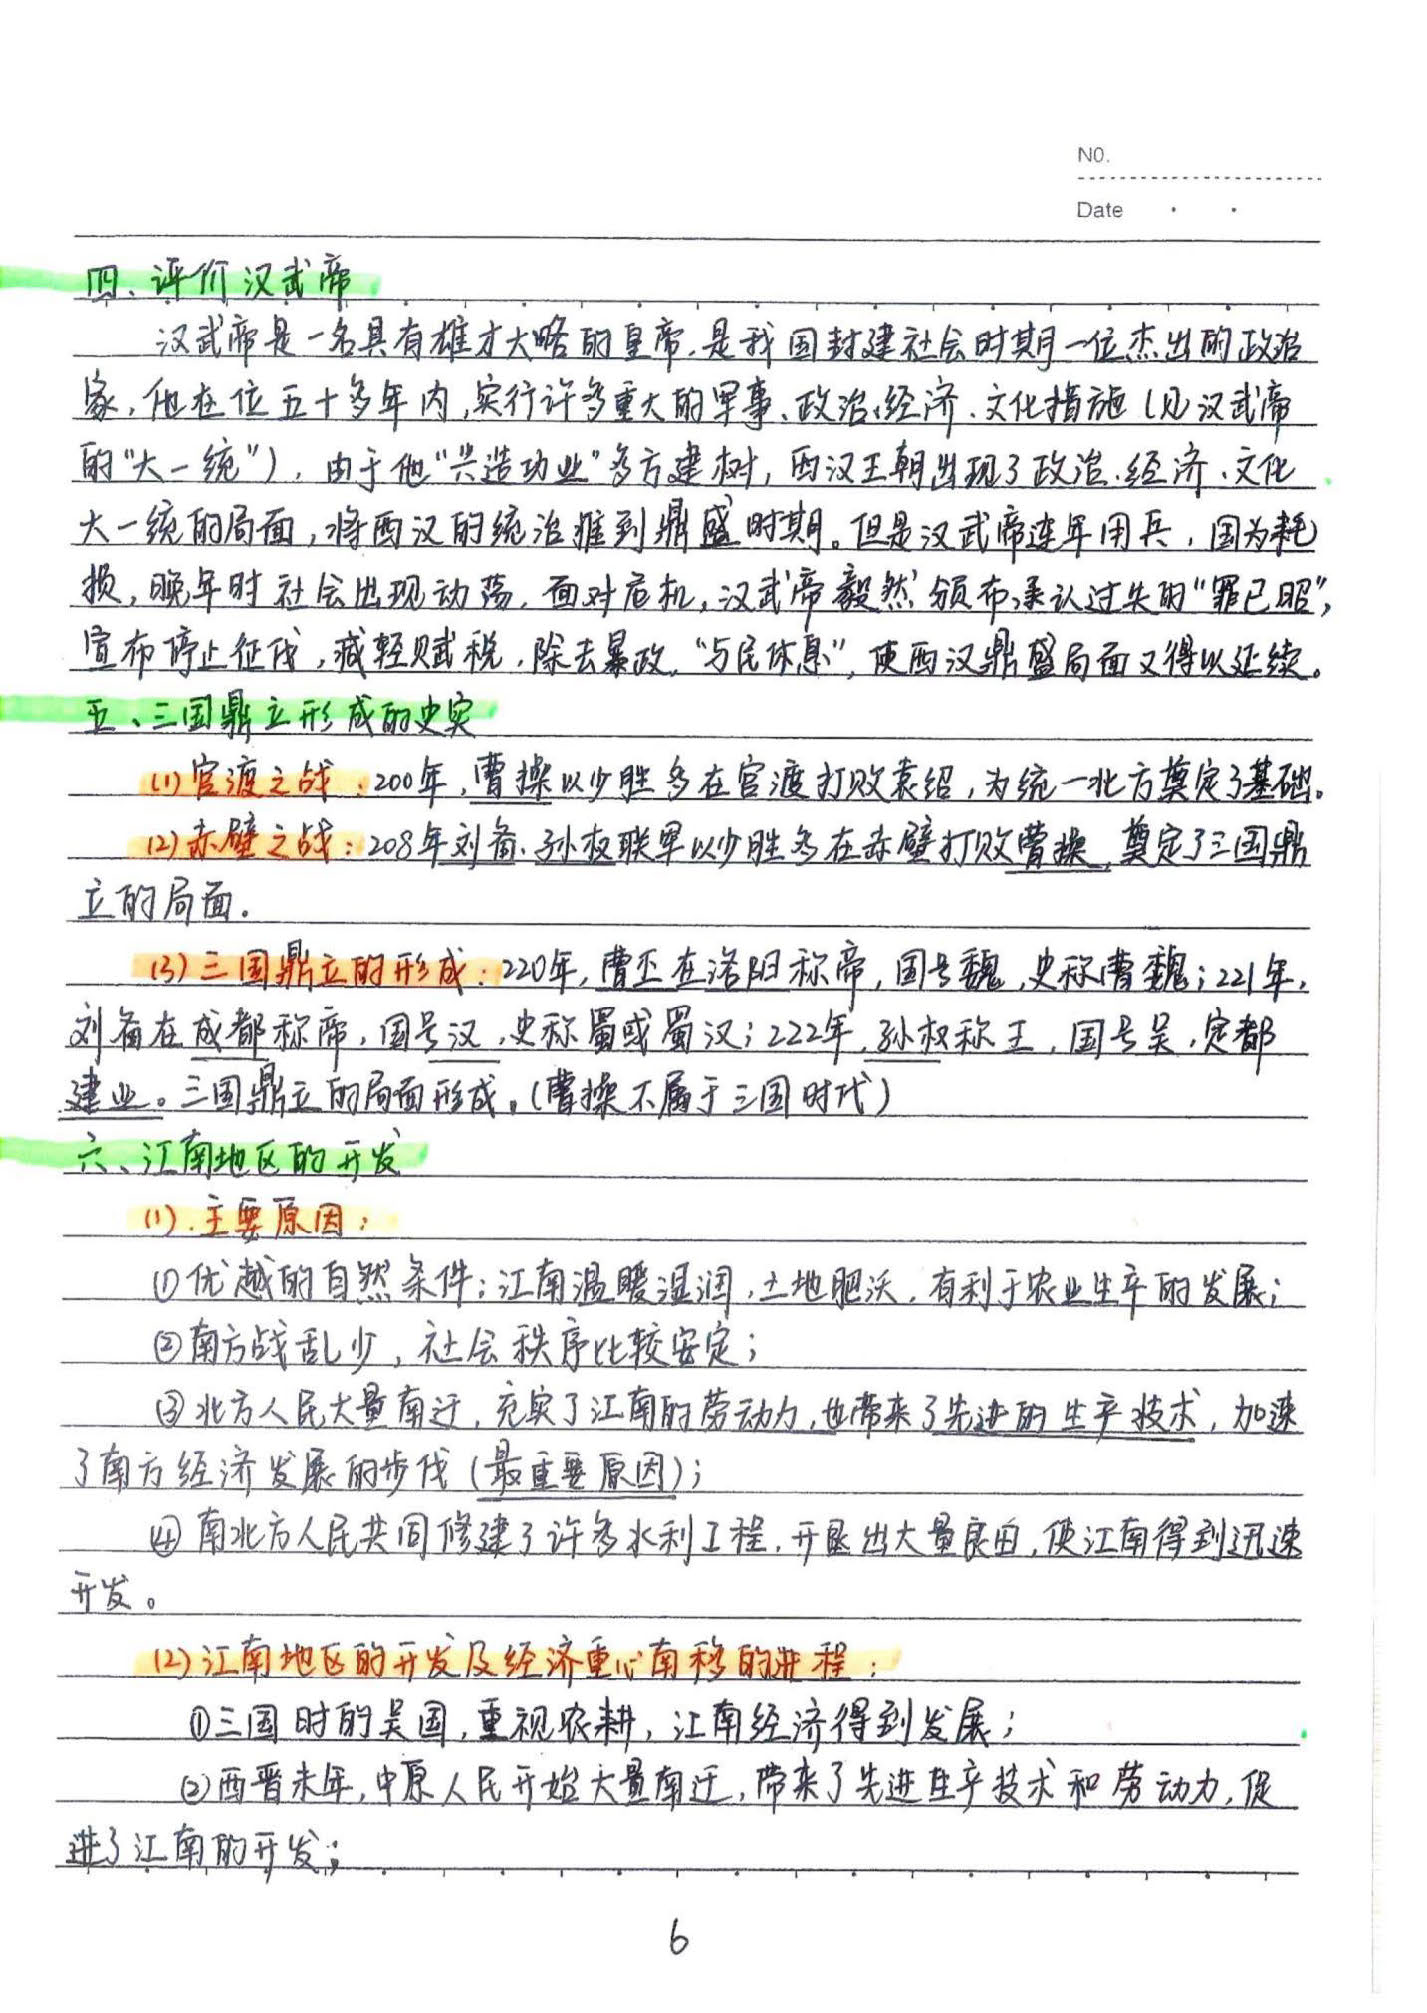 NO.
Date
四、评价汉武帝
汉武帝是一名具有雄才大略的皇帝,是我国封建社会时期一位杰出的政治
家,他在位五十多年内,实行许多重大的军事、政治、经济、文化措施(见汉武帝
的“大一统”),由于他“兴造功业”多方建树,西汉王朝出现了政治、经济、文化
大一统的局面,将西汉的统治推到鼎盛时期。但是汉武帝连年用兵,国为耗
损,晚年时社会出现动荡,面对危机,汉武帝毅然颁布承认过失的“罪已昭”,
宣布停止征伐,减轻赋税,除去暴政,“与民休息”,使西汉鼎盛局面又得以延续。
五、三国鼎立形成的史实
(1)官渡之战:200年,曹操以少胜多在官渡打败袁绍,为统一北方奠定了基础。
(2)赤壁之战:208年刘备、孙权联军以少胜多在赤壁打败曹操,奠定了三国鼎
立的局面。
(3)三国鼎立的形成:220年,曹丕在洛阳称帝,国号魏,史称曹魏;221年,
刘备在成都称帝,国号汉,史称蜀或蜀汉;222年,孙权称王,国号吴,定都
建业。三国鼎立的局面形成。(曹操不属于三国时代)
六、江南地区的开发
(1).主要原因:
①优越的自然条件:江南温暖湿润,土地肥沃,有利于农业生产的发展;
②南方战乱少,社会秩序比较安定;
③北方人民大量南迁,充实了江南的劳动力,也带来了先进的生产技术,加速
了南方经济发展的步伐(最重要原因);
④南北方人民共同修建了许多水利工程,开垦出大量良田,使江南得到迅速
开发。
(2)江南地区的开发及经济重心南移的进程:
①三国时的吴国,重视农耕,江南经济得到发展;
②西晋末年,中原人民开始大量南迁,带来了先进生产技术和劳动力,促
进了江南的开发;
6